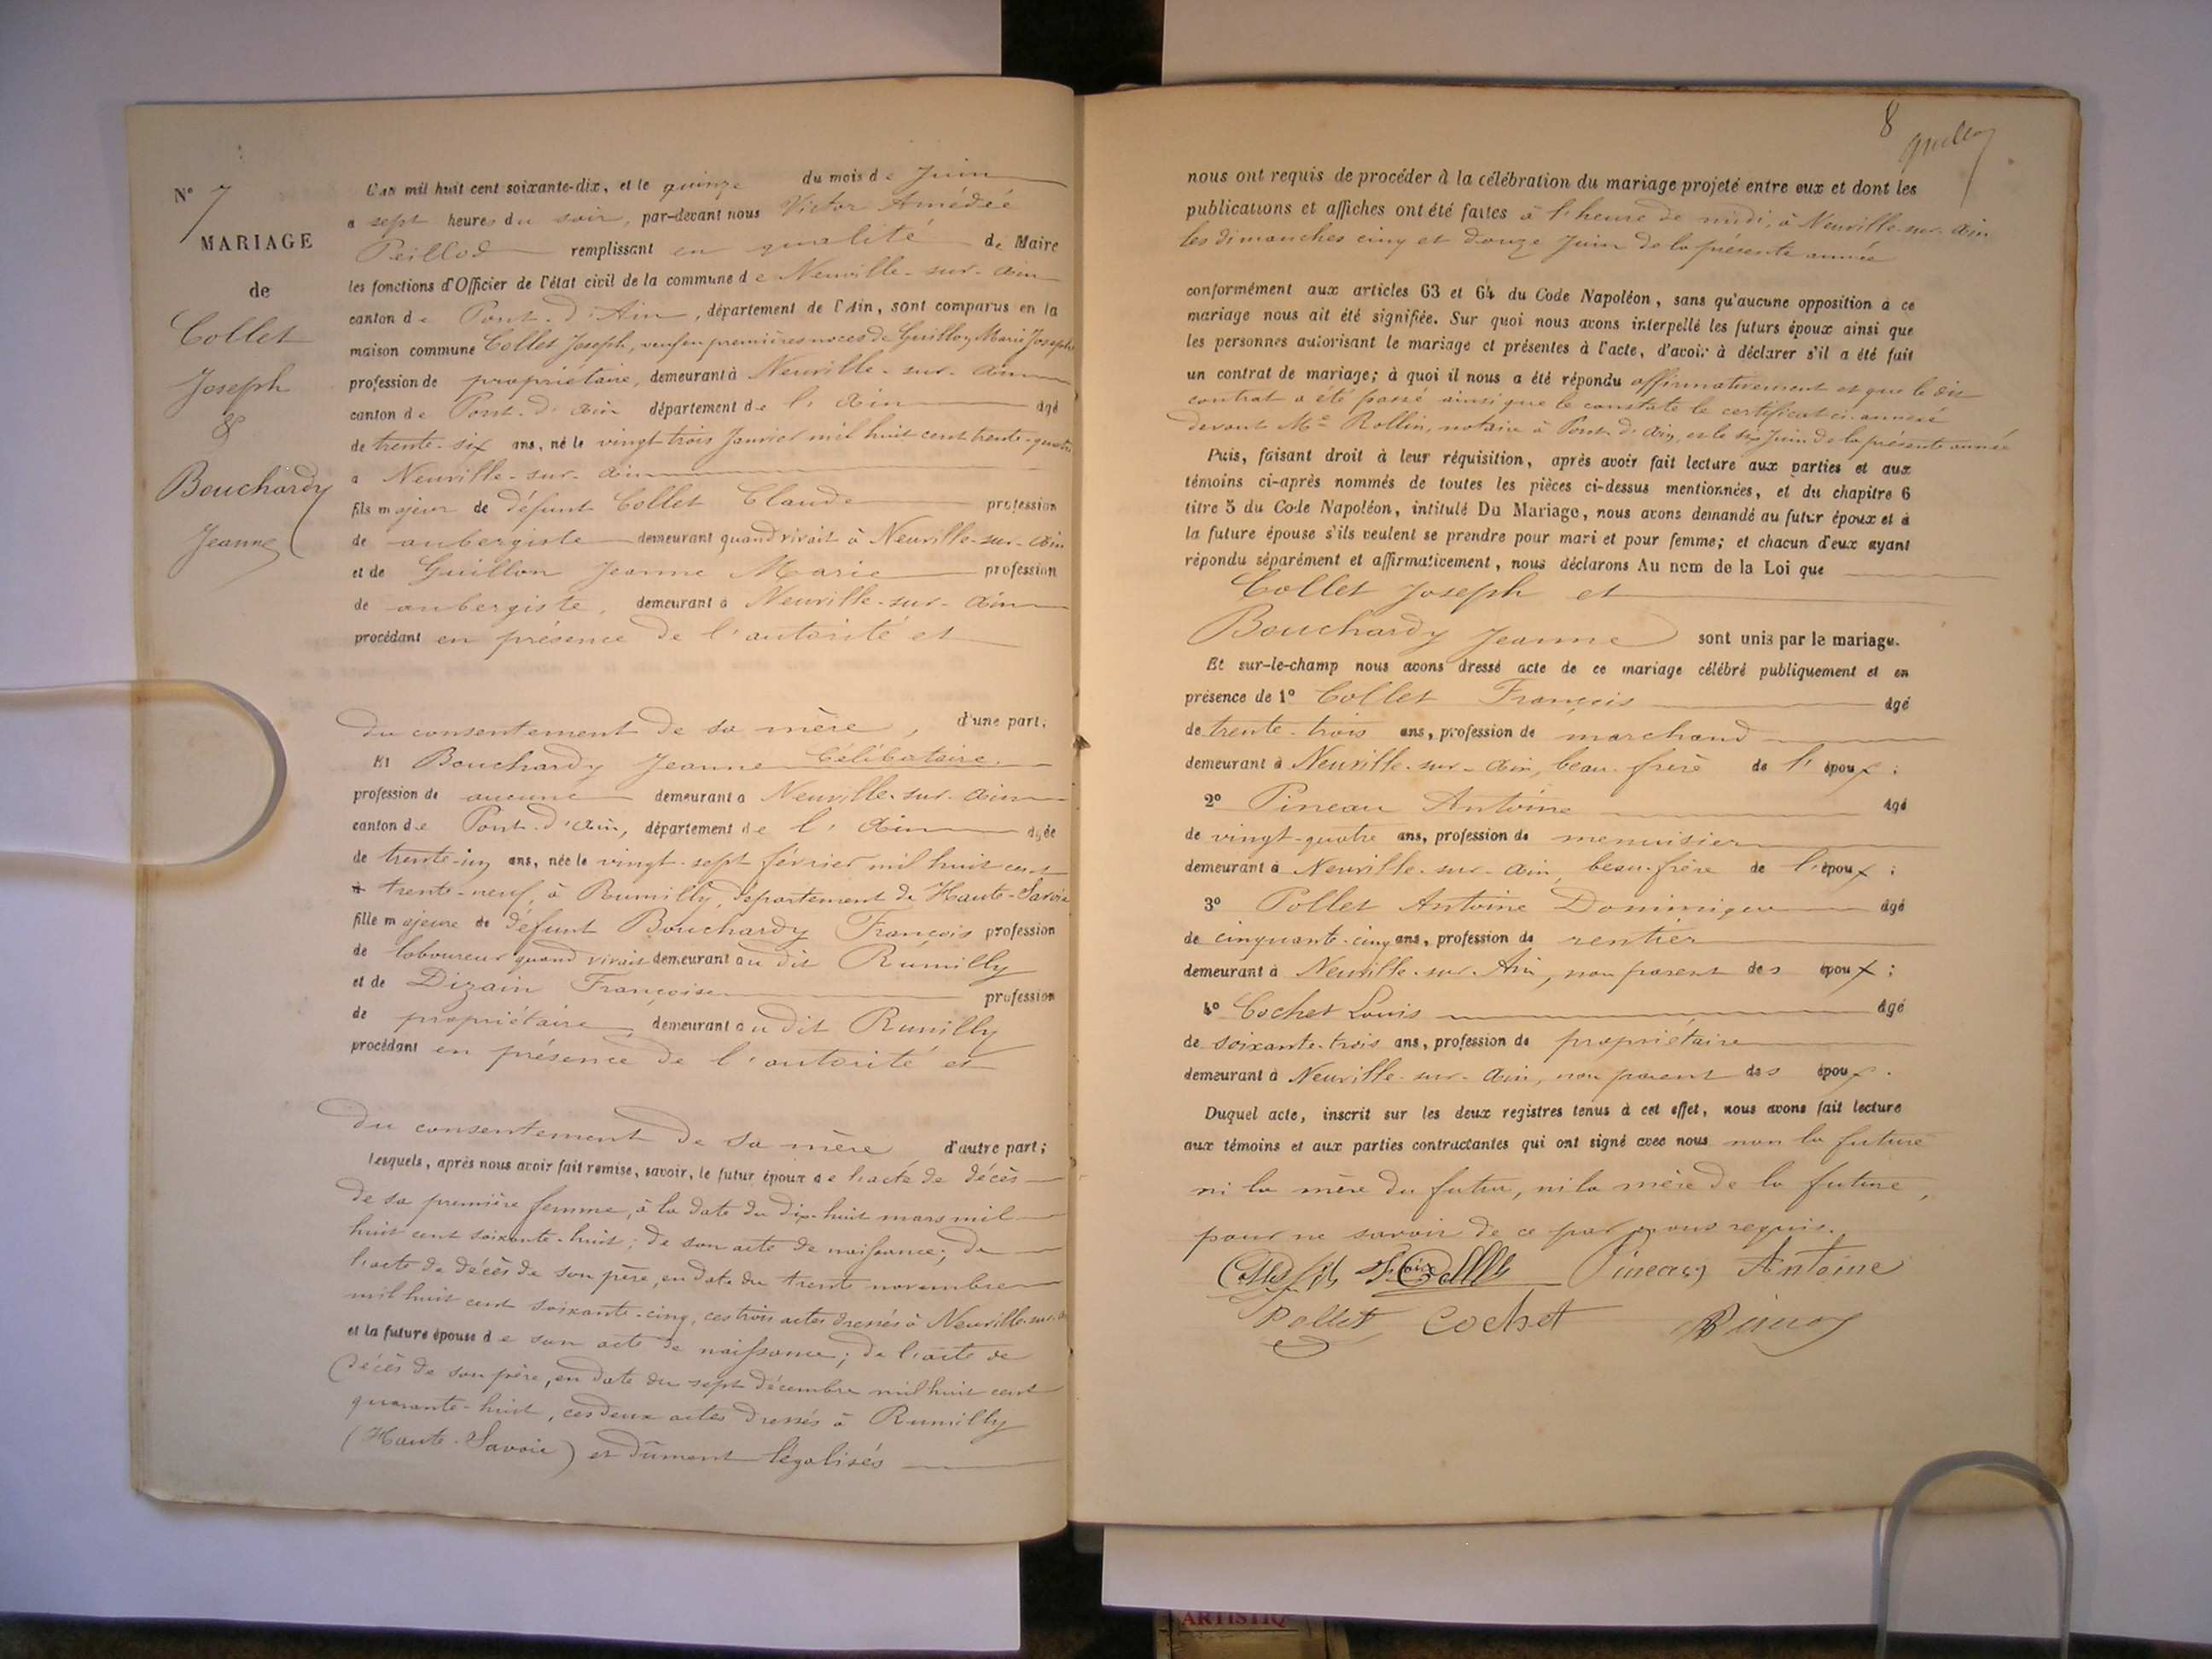 N° 7
MARIAGE
de
Collet
Joseph
&
Bouchardy
Jeanne
L'an mil huit cent soixante-dix, et le quinze du mois de Juin
a sept heures du soir, par-devant nous Victor Amédée
Peillod remplissant en qualité de Maire
les fonctions d'Officier de l'état civil de la commune de Neuville-sur-Ain
canton de Pont-d'Ain, département de l'Ain, sont comparus en la
maison commune Collet Joseph, veuf en premières noces de Guilloz Marie Josephe
profession de propriétaire, demeurant à Neuville-sur-Ain
canton de Pont-d'Ain département de l'Ain âgé
de trente-six ans, né le vingt trois Janvier mil huit cent trente-quatre
a Neuville-sur-Ain
fils majeur de défunt Collet Claude profession
de aubergiste demeurant quand vivait à Neuville-sur-Ain
et de Guillon Jeanne Marie profession
de aubergiste, demeurant a Neuville-sur-Ain
procédant en présence de l'autorité et
du consentement de sa mère, d'une part;
Et Bouchardy Jeanne Célibataire
profession de aucune demeurant a Neuville-sur-Ain
canton de Pont-d'Ain, département de l'Ain âgée
de trente-un ans, née le vingt-sept février mil huit cent
trente-neuf, à Rumilly, département de Haute-Savoie
fille majeure de défunt Bouchardy François profession
de laboureur quand vivait demeurant au dit Rumilly
et de Dizain Françoise profession
de propriétaire, demeurant au dit Rumilly
procédant en présence de l'autorité et
du consentement de sa mère d'autre part;
lesquels, après nous avoir fait remise, savoir, le futur époux de l'acte de décès
de sa première femme, à la date du dix-huit mars mil
huit cent soixante-huit; de son acte de naissance; de
l'acte de décès de son père, en date du trente novembre
mil huit cent soixante-cinq, ces trois actes dressés à Neuville-sur-Ain
et la future épouse de son acte de naissance; de l'acte de
décès de son père, en date du sept décembre mil huit cent
quarante-huit, ces deux actes dressés à Rumilly
(Haute-Savoie) et dûment légalisés
8
nous ont requis de procéder à la célébration du mariage projeté entre eux et dont les
publications et affiches ont été faites à l'heure de midi, à Neuville-sur-Ain
les dimanches cinq et douze Juin de la présente année
conformément aux articles 63 et 64 du Code Napoléon, sans qu'aucune opposition à ce
mariage nous ait été signifiée. Sur quoi nous avons interpellé les futurs époux ainsi que
les personnes autorisant le mariage et présentes à l'acte, d'avoir à déclarer s'il a été fait
un contrat de mariage; à quoi il nous a été répondu affirmativement et que le dit
contrat a été passé ainsi que le constate le certificat ci-annexé
devant Me Rollin, notaire à Pont-d'Ain, et le six Juin de la présente année
Puis, faisant droit à leur réquisition, après avoir fait lecture aux parties et aux
témoins ci-après nommés de toutes les pièces ci-dessus mentionnées, et du chapitre 6
titre 5 du Code Napoléon, intitulé Du Mariage, nous avons demandé au futur époux et à
la future épouse s'ils veulent se prendre pour mari et pour femme; et chacun d'eux ayant
répondu séparément et affirmativement, nous déclarons Au nom de la Loi que
Collet Joseph et
Bouchardy Jeanne sont unis par le mariage.
Et sur-le-champ nous avons dressé acte de ce mariage célébré publiquement et en
présence de 1° Collet François âgé
de trente-trois ans, profession de marchand
demeurant à Neuville-sur-Ain, beau-frère de l'époux;
2° Pineau Antoine âgé
de vingt-quatre ans, profession de menuisier
demeurant à Neuville-sur-Ain, beau-frère de l'époux;
3° Pollet Antoine Dominique âgé
de cinquante-cinq ans, profession de rentier
demeurant à Neuville-sur-Ain, non parent des époux;
4° Cochet Louis âgé
de soixante-trois ans, profession de propriétaire
demeurant à Neuville-sur-Ain, non parent des époux.
Duquel acte, inscrit sur les deux registres tenus à cet effet, nous avons fait lecture
aux témoins et aux parties contractantes qui ont signé avec nous non la future
ni la mère du futur, ni la mère de la future,
pour ne savoir de ce par nous requis.
Pineau Antoine
Pollet Cochet
ARTISTIQ